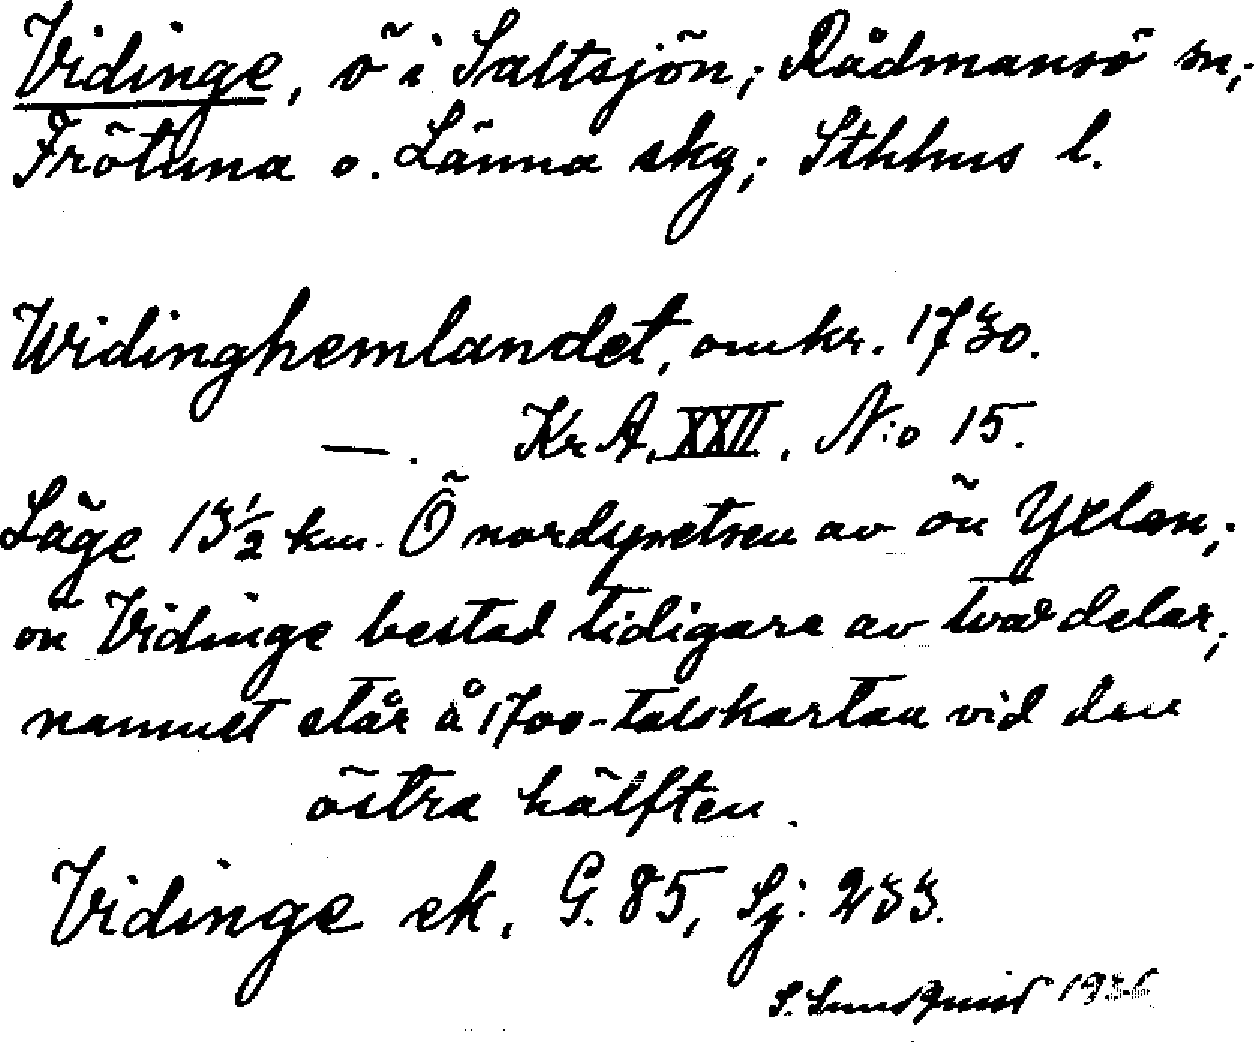 Vidinge, ö i Saltsjön; Rådmansö sn;
Frötuna o. Länna skg; Sthlms l.
Widinghemlandet, omkr. 1730.
—. Kr A. XXII. N:o 15.
Läge 13½ km. Ö nordspetsen av ön Yxlan;
ön Vidinge bestod tidigare av två delar,
namnet står å 1700-talskartan vid den
östra hälften.
Vidinge ek. G. 85, Sj: 233.
S. Sundquist